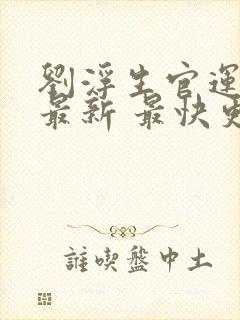 劉浮生官運
最新 最快更
誰喫盤中土